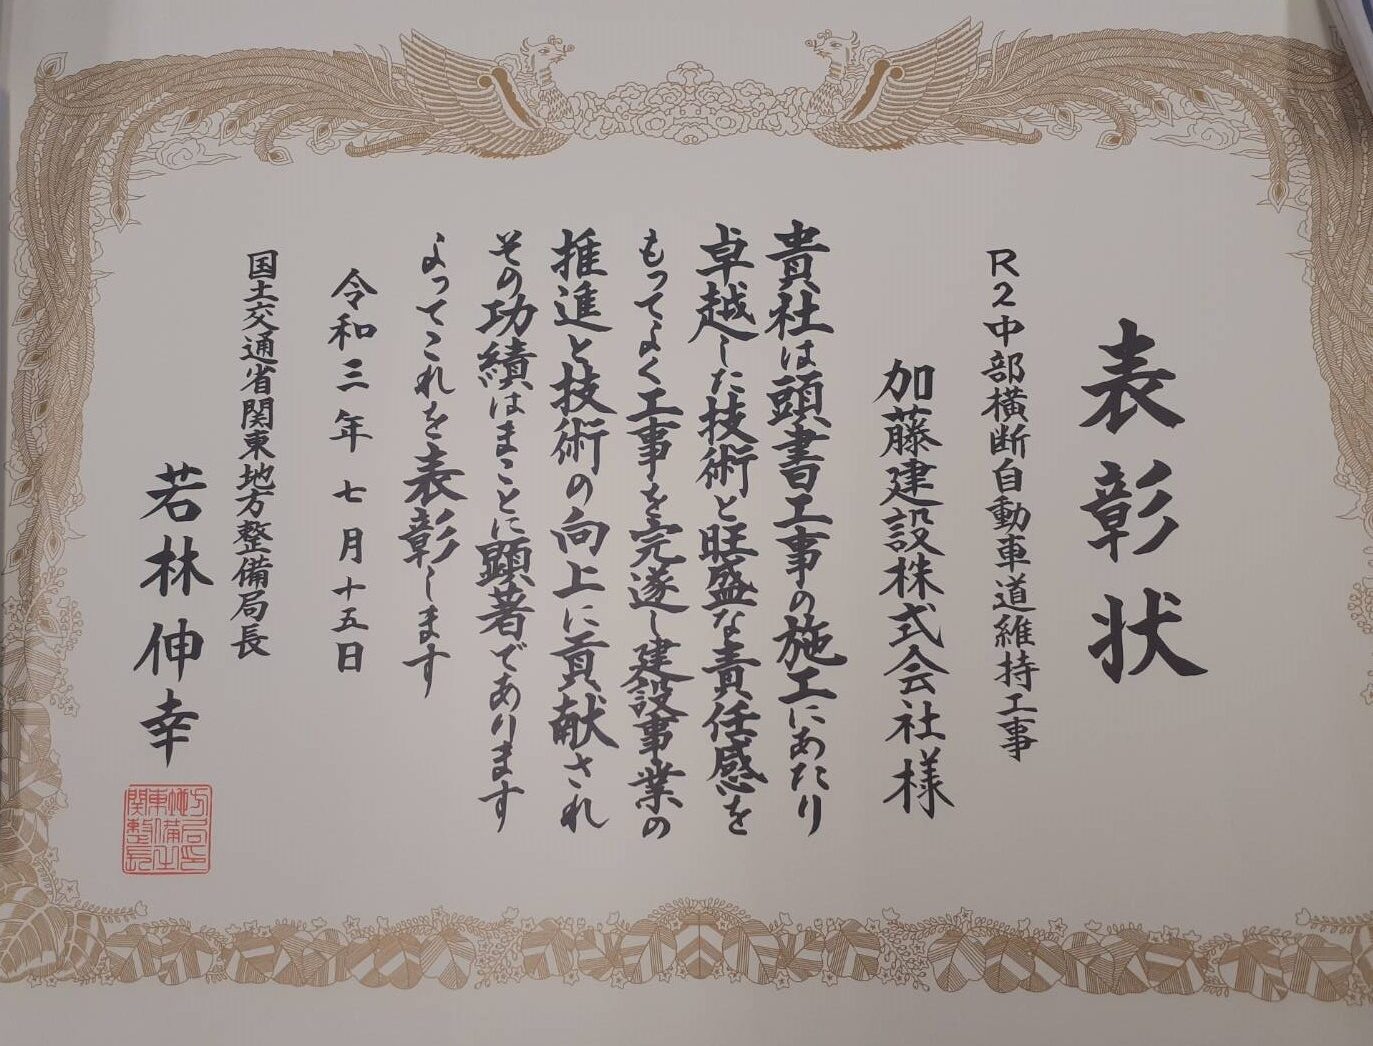 表彰状
R2中部横断自動車道維持工事
加藤建設株式会社様
貴社は頭書工事の施工にあたり
卓越した技術と旺盛な責任感を
もってよく工事を完遂し建設事業の
推進と技術の向上に貢献され
その功績はまことに顕著であります
よってこれを表彰します
令和三年七月十五日
国土交通省関東地方整備局長
若林伸幸